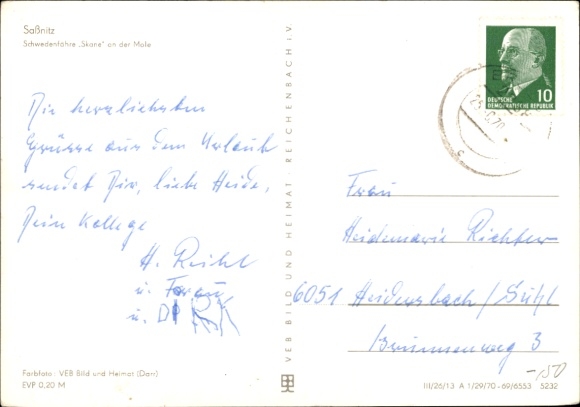 Saßnitz
Schwedenfähre „Skane" an der Mole
Die herzlichsten
Grüsse aus dem Urlaub
sendet Dir, liebe Heide,
Dein Kollege
H. Reihl
u. Frau
u. DIRK
VEB BILD UND HEIMAT · REICHENBACH i.V.
Farbfoto: VEB Bild und Heimat (Darr)
EVP 0,20 M
10
DEUTSCHE
DEMOKRATISCHE REPUBLIK
Frau
Heidemarie Richter
6051 Heidersbach/Suhl
Brunnenweg 3
-,50
III/26/13 A 1/29/70 - 69/6553 5232